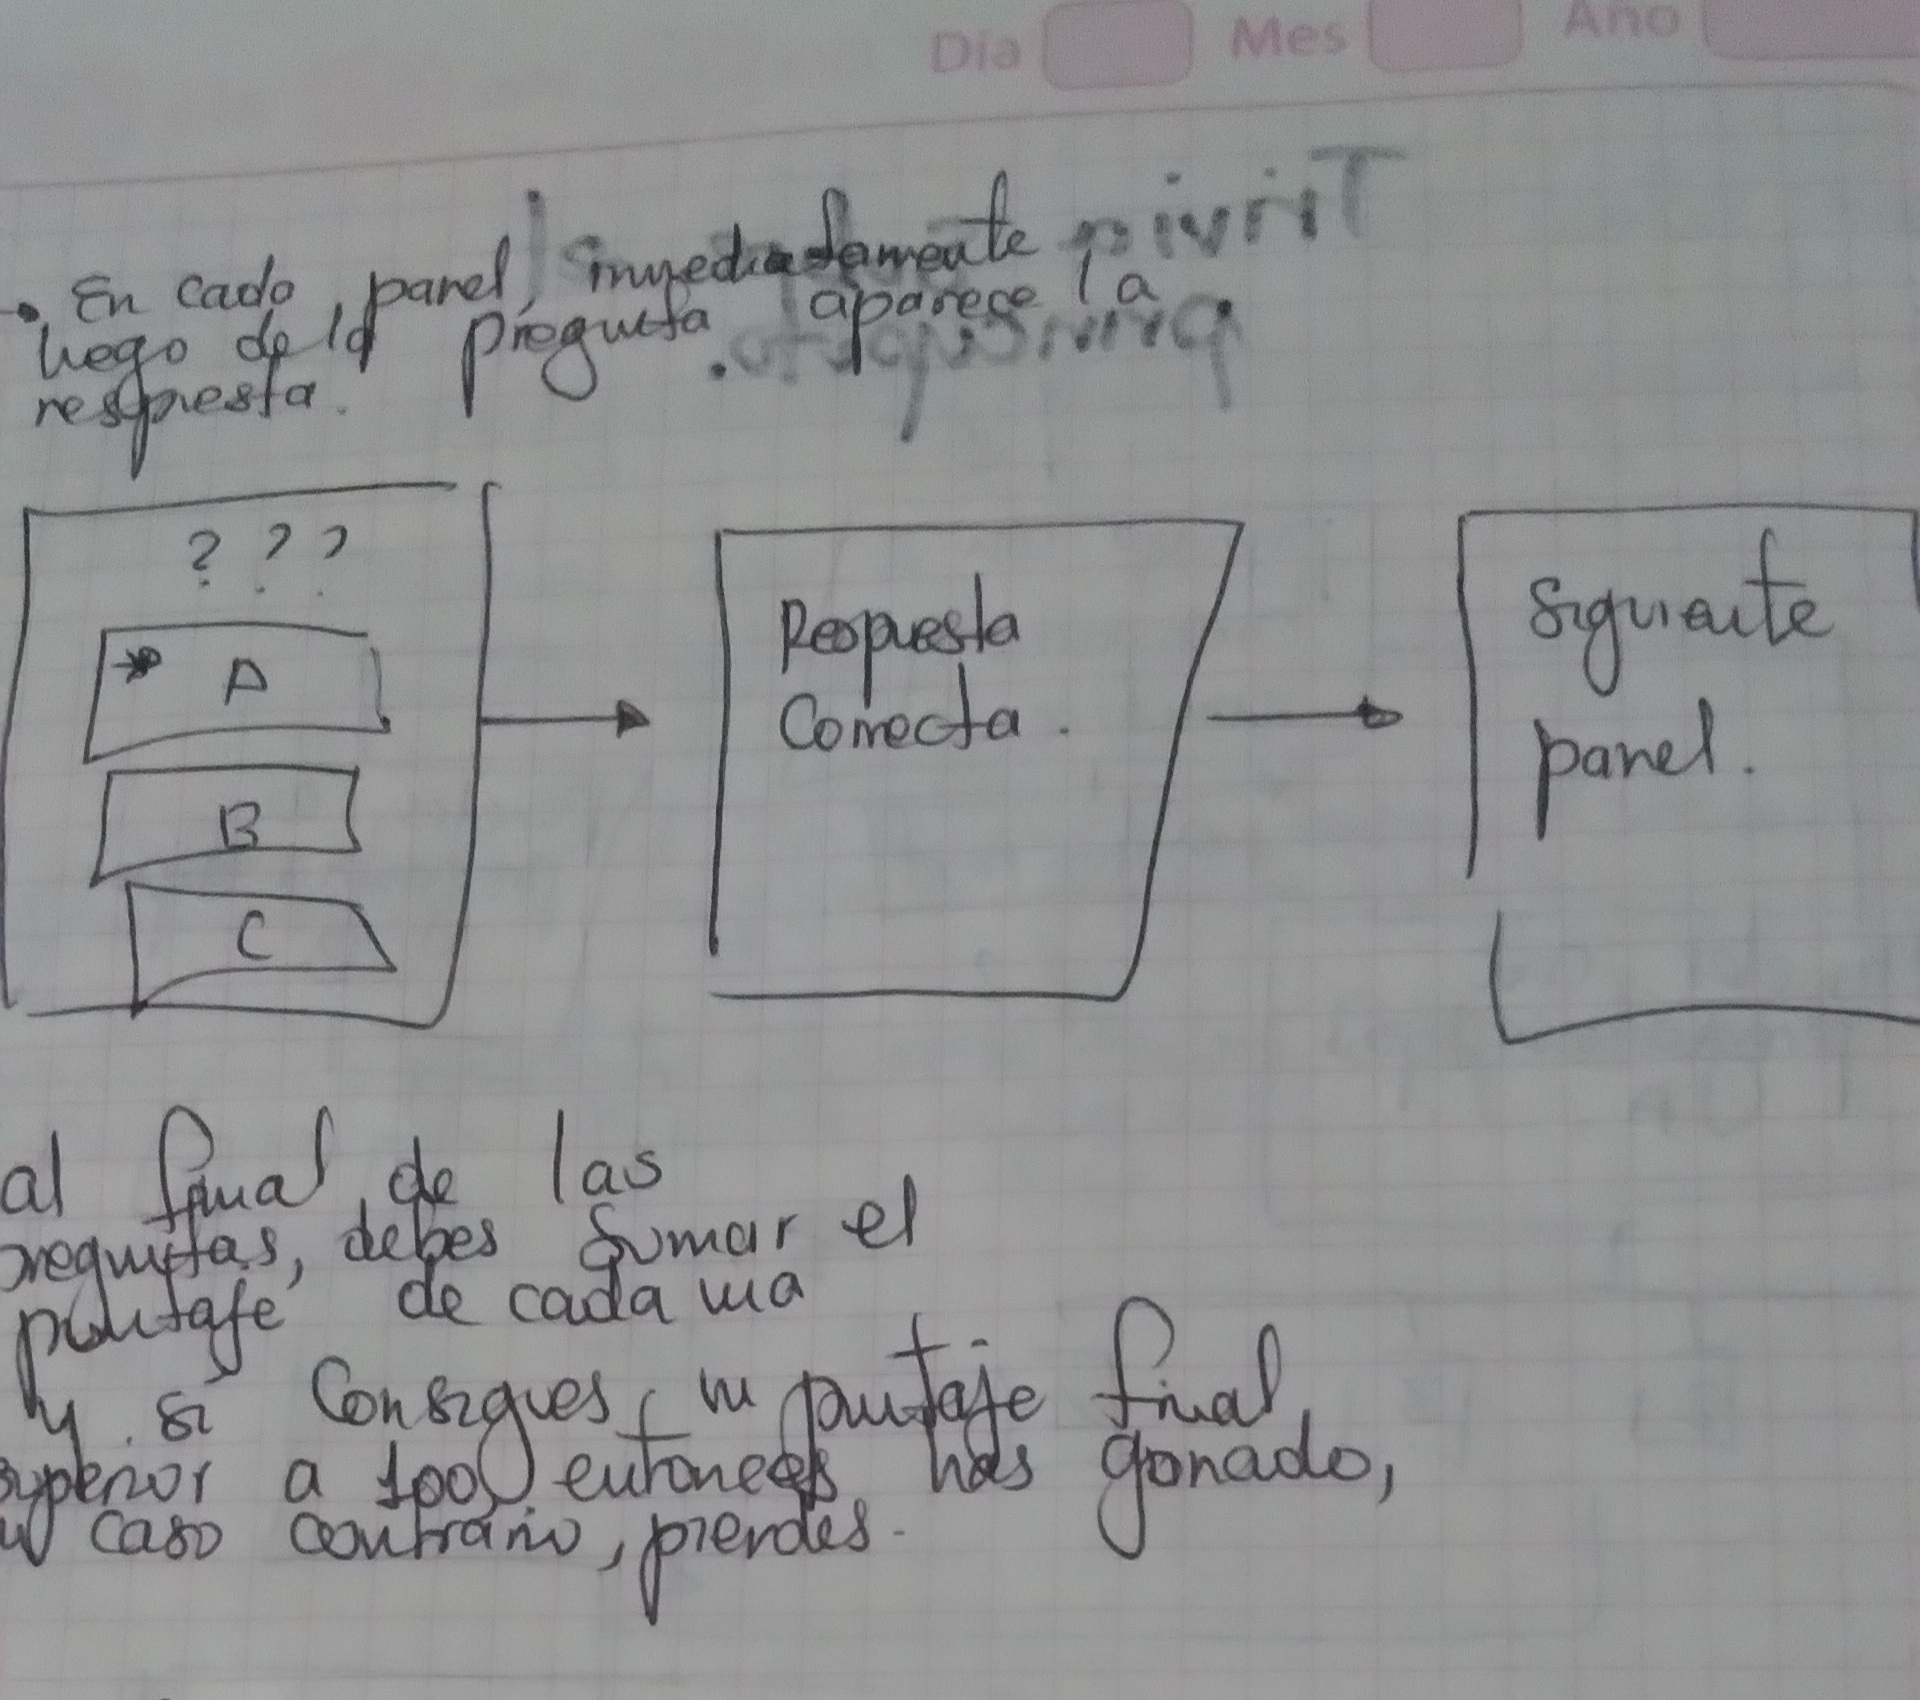 Día Mes Año
• En cada panel, inmediatamente
luego de la pregunta aparece la
respuesta.
? ? ?
A
B
C
Respuesta
Correcta.
Siguiente
panel.
al final de las
preguntas, debes sumar el
puntaje de cada una
y si consigues un puntaje final
superior a 100 entonces has ganado,
caso contrario, pierdes.